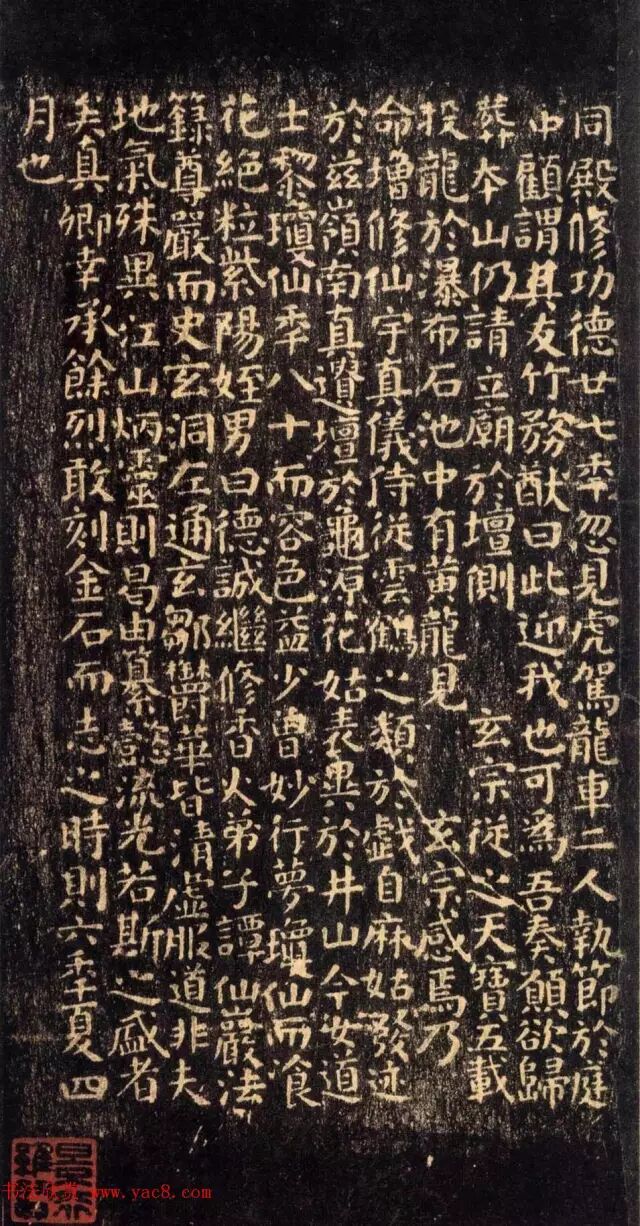 同殿修功德廿七秊忽見虎駕龍車二人執節於庭
中顧謂其友竹務猷曰此迎我也可為吾奏願欲歸
葬本山仍請立廟於壇側 玄宗從之天寶五載
投龍於瀑布石池中有黃龍見 玄宗感焉乃
命增修仙宇真儀侍從雲鶴之類於戲自麻姑發迹
於茲嶺南真遺壇於龜源花姑表異於井山今女道
士黎瓊仙秊八十而容色益少曾妙行夢瓊仙而飡
花絕粒紫陽姪男曰德誠繼修香火弟子譚仙巖法
籙尊嚴而史玄洞左通玄鄒鬱華皆清虛服道非夫
地氣殊異江山炳靈則曷由纂懿流光若斯之盛者
矣真卿幸承餘烈敢刻金石而志之時則六秊夏四
月也
书法欣赏 www.yac8.com